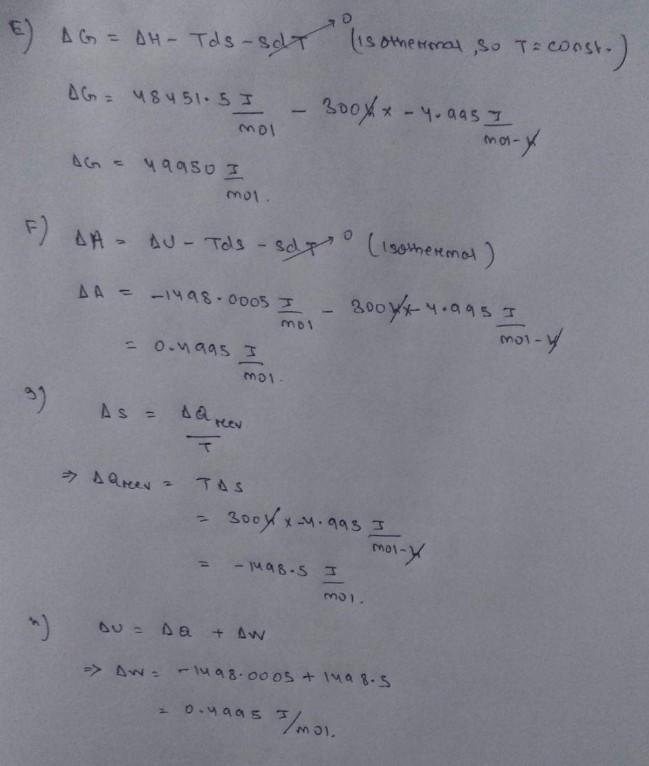 E) ΔG = ΔH - Tds - sdT → 0 (isothermal, so T = const.)
ΔG = 48451.5 J/mol - 300K x - 4.995 J/mol-K
ΔG = 49950 J/mol.
F) ΔA = ΔU - Tds - sdT → 0 (isothermal)
ΔA = -1498.0005 J/mol - 300K x - 4.995 J/mol-K
= 0.4995 J/mol.
g)
ΔS = ΔQrev/T
⇒ ΔQrev = TΔS
= 300K x -4.995 J/mol-K
= -1498.5 J/mol.
h) ΔU = ΔQ + ΔW
⇒ ΔW = -1498.0005 + 1498.5
= 0.4995 J/mol.